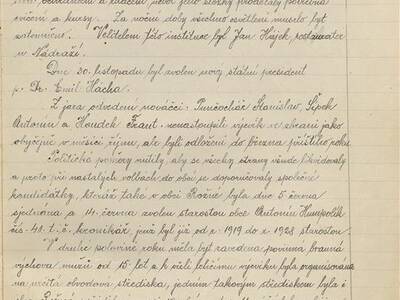 cvičení a kursy. Za noční doby všechno osvětlení muselo být
zatemněné. Velitelem této instituce byl Jan Hájek, restauratér
v Nádraží.
Dne 30. listopadu byl zvolen nový státní president
p. Dr. Emil Hácha.
Z jara odvedení nováčci: Punčochář Stanislav, Šípek
Antonín a Houdek Frant. nenastoupili výcvik ve zbrani jako
obyčejně v měsíci říjnu, ale byli odloženi do března příštího roku.
Politické poměry nutily, aby se všechny strany všude likvidovaly
a proto při nastalých volbách do obcí se doporučovaly společné
kandidátky, kteráž také v obci Rožné byla dne 5 června
sjednána a 14. června zvolen starostou obce Antonín Humpolík
čís. 48. t. č. kronikář jenž byl již od r. 1919 do r. 1928 starostou.
V druhé polovině roku měla být zavedena povinná branná
výchova mužů od 15 let a k vůli lehčímu výcviku byla organisována
na určitá obvodová střediska, jedním takovým střediskem byla i